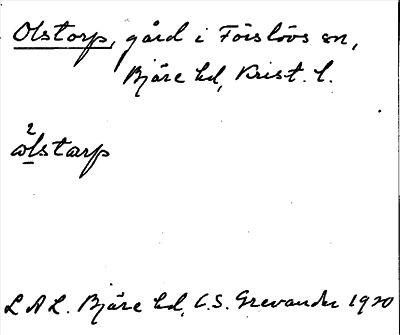 Olstorp, gård i Förslövs sn,
Bjäre hd, Krist. l.
2
ωlstarp
L A L. Bjäre hd, C.S. Grevander 1920